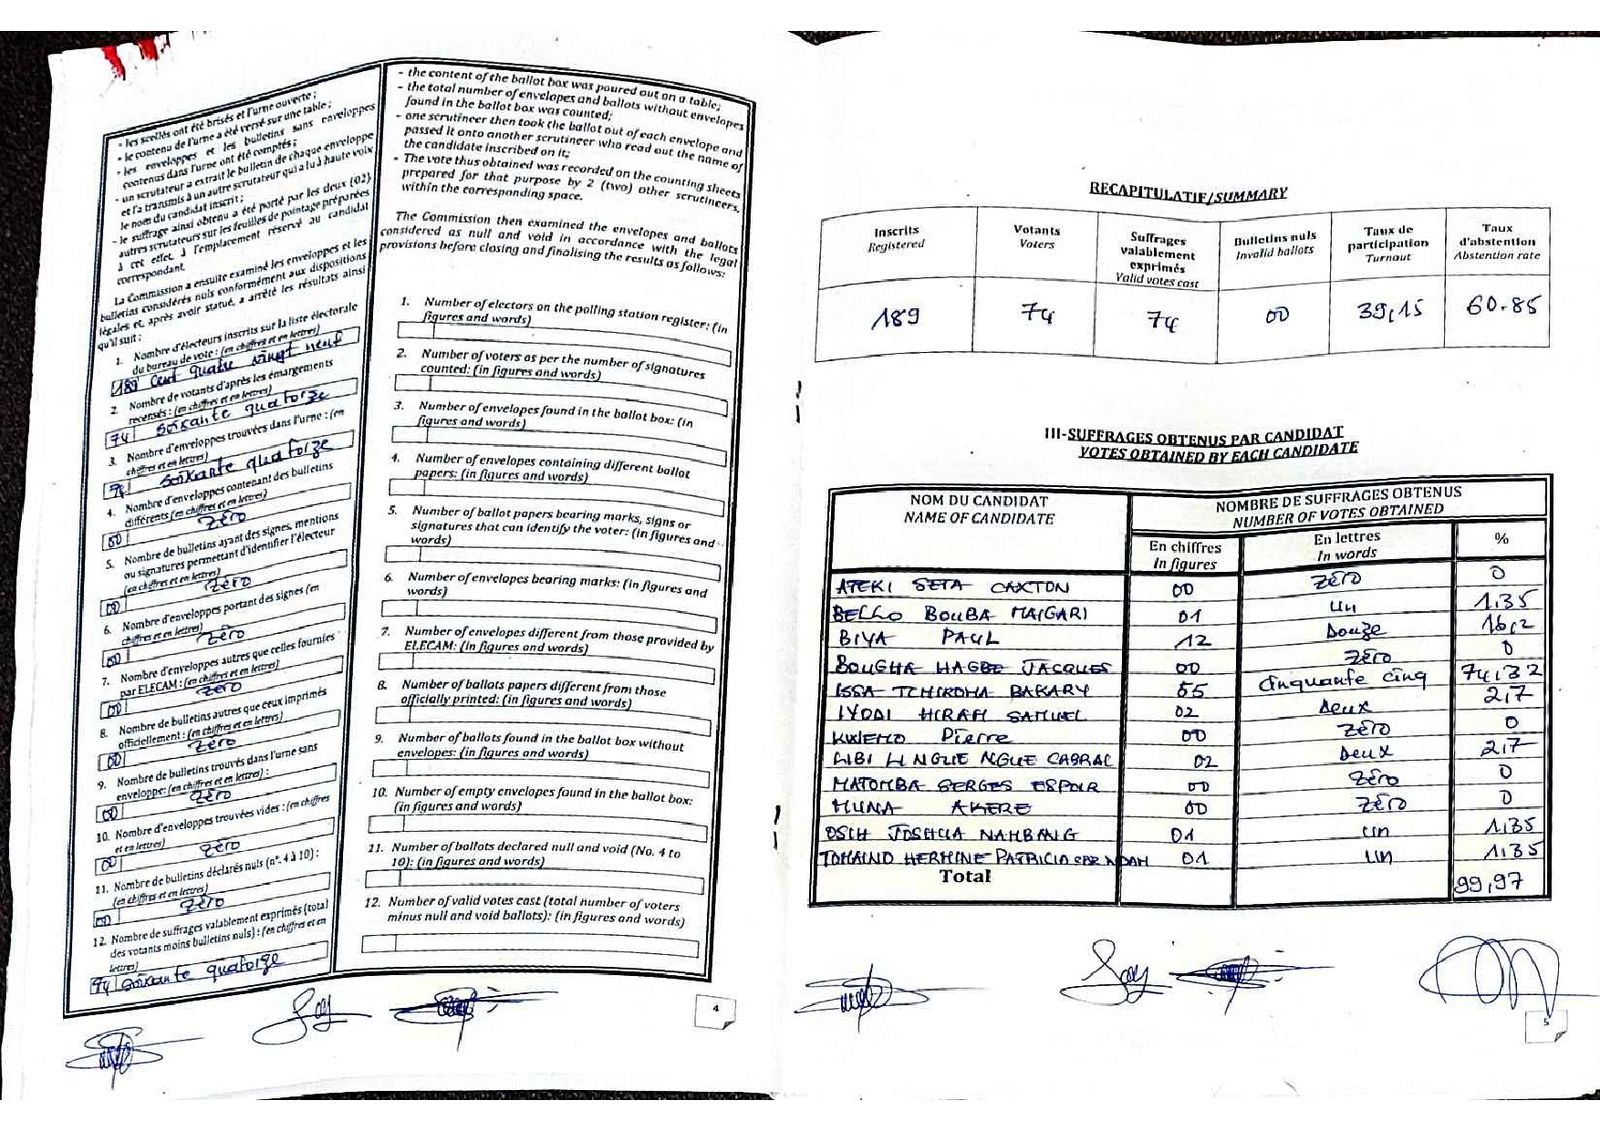 - les scellés ont été brisés et l'urne ouverte ;
- le contenu de l'urne a été versé sur une table ;
- les enveloppes et les bulletins sans enveloppes
contenus dans l'urne ont été comptés ;
- un scrutateur a extrait le bulletin de chaque enveloppe
et l'a transmis à un autre scrutateur qui a lu à haute voix
le nom du candidat inscrit ;
- le suffrage ainsi obtenu a été porté par les deux (02)
autres scrutateurs sur les feuilles de pointage préparées
à cet effet, à l'emplacement réservé au candidat
correspondant.
La Commission a ensuite examiné les enveloppes et les
bulletins considérés nuls conformément aux dispositions
légales et, après avoir statué, a arrêté les résultats ainsi
qu'il suit :
1. Nombre d'électeurs inscrits sur la liste électorale
du bureau de vote : (en chiffres et en lettres)
189 Cent quatre vingt neuf
2. Nombre de votants d'après les émargements
recensés : (en chiffres et en lettres)
74 soixante quatorze
3. Nombre d'enveloppes trouvées dans l'urne : (en
chiffres et en lettres)
74 soixante quatorze
4. Nombre d'enveloppes contenant des bulletins
différents (en chiffres et en lettres)
00 Zéro
5. Nombre de bulletins ayant des signes, mentions
ou signatures permettant d'identifier l'électeur
(en chiffres et en lettres)
00 Zéro
6. Nombre d'enveloppes portant des signes (en
chiffres et en lettres)
00 Zéro
7. Nombre d'enveloppes autres que celles fournies
par ELECAM : (en chiffres et en lettres)
00 Zéro
8. Nombre de bulletins autres que ceux imprimés
officiellement : (en chiffres et en lettres)
00 Zéro
9. Nombre de bulletins trouvés dans l'urne sans
enveloppe: (en chiffres et en lettres) :
00 Zéro
10. Nombre d'enveloppes trouvées vides : (en chiffres
et en lettres)
00 Zéro
11. Nombre de bulletins déclarés nuls (n°. 4 à 10) :
(en chiffres et en lettres)
00 Zéro
12. Nombre de suffrages valablement exprimés (total
des votants moins bulletins nuls) : (en chiffres et en
lettres)
74 soixante quatorze
- the content of the ballot box was poured out on a table;
- the total number of envelopes and ballots without envelopes
found in the ballot box was counted;
- one scrutineer then took the ballot out of each envelope and
passed it onto another scrutineer who read out the name of
the candidate inscribed on it;
- The vote thus obtained was recorded on the counting sheets
prepared for that purpose by 2 (two) other scrutineers,
within the corresponding space.
The Commission then examined the envelopes and ballots
considered as null and void in accordance with the legal
provisions before closing and finalising the results as follows:
1. Number of electors on the polling station register: (in
figures and words)
2. Number of voters as per the number of signatures
counted: (in figures and words)
3. Number of envelopes found in the ballot box: (in
figures and words)
4. Number of envelopes containing different ballot
papers: (in figures and words)
5. Number of ballot papers bearing marks, signs or
signatures that can identify the voter: (in figures and
words)
6. Number of envelopes bearing marks: (in figures and
words)
7. Number of envelopes different from those provided by
ELECAM: (in figures and words)
8. Number of ballots papers different from those
officially printed: (in figures and words)
9. Number of ballots found in the ballot box without
envelopes: (in figures and words)
10. Number of empty envelopes found in the ballot box:
(in figures and words)
11. Number of ballots declared null and void (No. 4 to
10): (in figures and words)
12. Number of valid votes cast (total number of voters
minus null and void ballots): (in figures and words)
4
RECAPITULATIF/SUMMARY
Inscrits Registered | Votants Voters | Suffrages valablement exprimés Valid votes cast | Bulletins nuls Invalid ballots | Taux de participation Turnout | Taux d'abstention Abstention rate
189 74 74 00 39,15 60.85
III-SUFFRAGES OBTENUS PAR CANDIDAT
VOTES OBTAINED BY EACH CANDIDATE
NOM DU CANDIDAT NOMBRE DE SUFFRAGES OBTENUS
NAME OF CANDIDATE NUMBER OF VOTES OBTAINED
En chiffres En lettres %
In figures In words
ATEKI SETA CAXTON 00 Zéro 0
BELLO BOUBA MAIGARI 01 Un 1.35
BIYA PAUL 12 Douze 16,2
BOUGHA HAGBE JACQUES 00 Zéro 0
ISSA TCHIROMA BAKARY 55 Cinquante cinq 74,32
IYODI HIRAM SAMUEL 02 deux 2,7
KWEMO Pierre 00 Zéro 0
LIBI LI NGUE NGUE CABRAL 02 Deux 2,7
MATOMBA SERGES ESPOIR 00 Zéro 0
MUNA AKERE 00 Zéro 0
OSIH JOSHUA NAMBANG 01 un 1,35
TOMAINO HERMINE PATRICIA EPE NDAM 01 un 1.35
Total 99,97
5